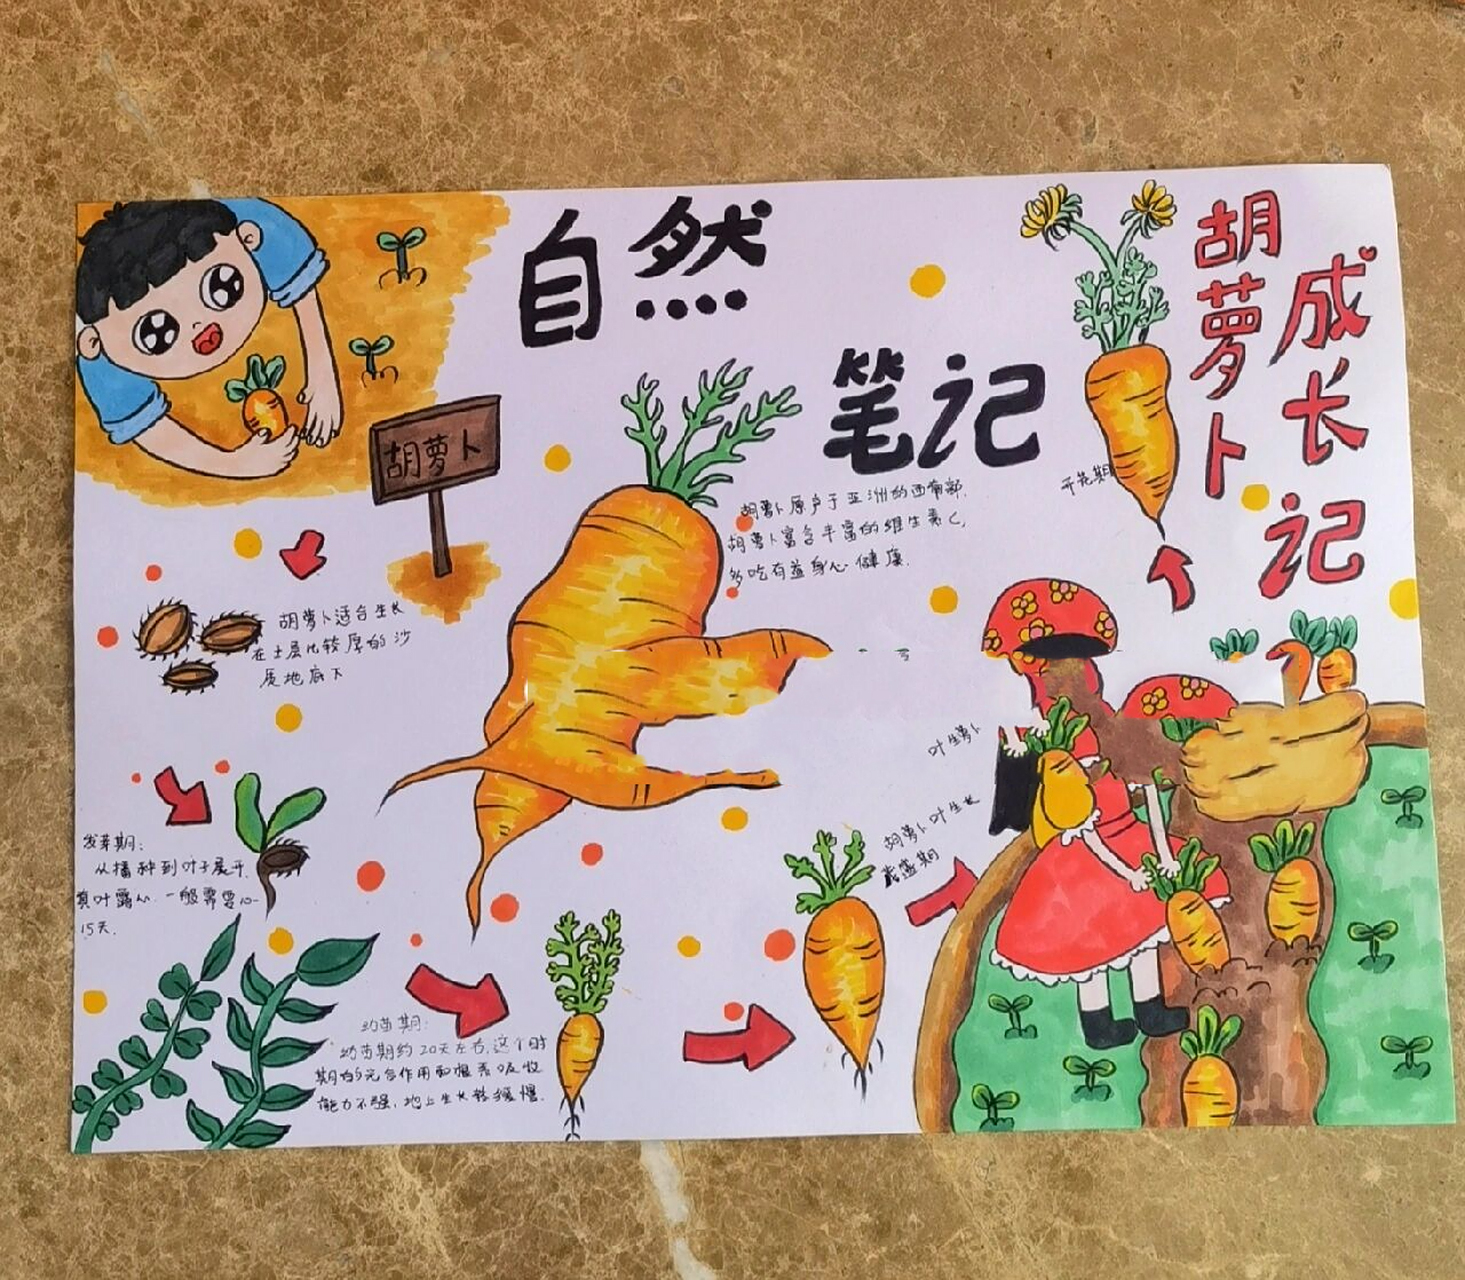 自然
笔记
胡萝卜
成长
记
胡萝卜
胡萝卜原产于亚洲的西南部,
胡萝卜富含丰富的维生素C,
多吃有益身心健康.
开花期
胡萝卜适合生长
在土层比较厚的沙
质地底下
发芽期:
从播种到叶子展开,
真叶露心.一般需要10-
15天.
幼苗期:
幼苗期约20天左右,这个时
期的光合作用和根系吸收
能力不强,地上生长较缓慢.
胡萝卜叶生长
旺盛期
叶生萝卜